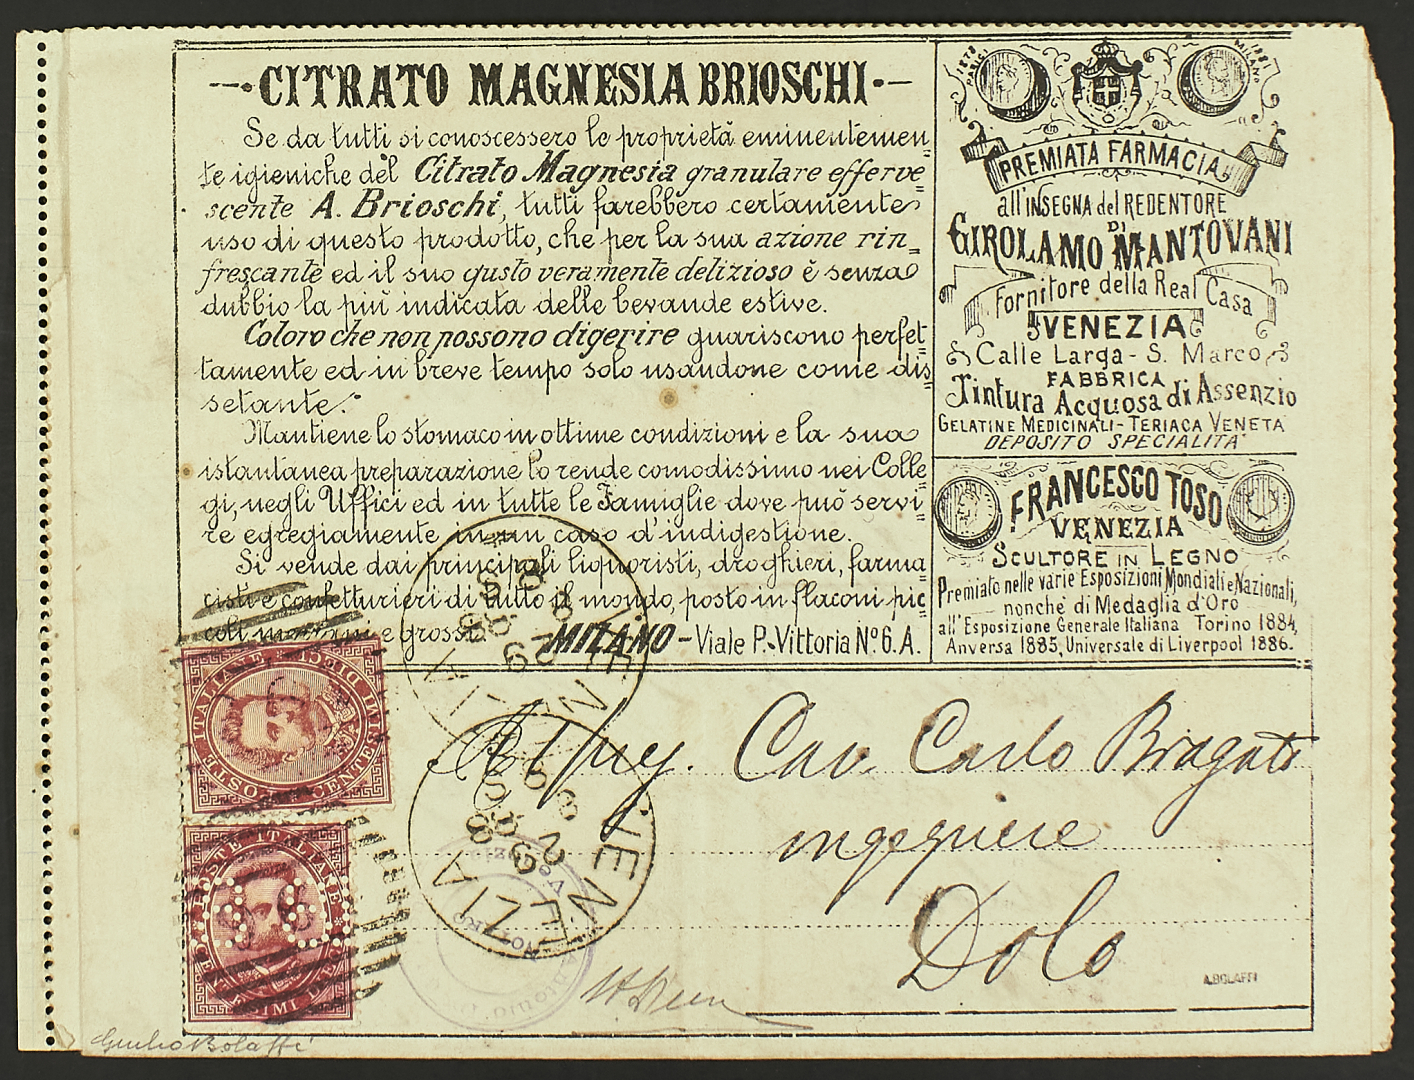 CITRATO MAGNESIA BRIOSCHI
Se da tutti si conoscessero le proprietà eminentemen=
te igieniche del Citrato Magnesia granulare efferve=
scente A. Brioschi, tutti farebbero certamente
uso di questo prodotto, che per la sua azione rin=
frescante ed il suo gusto veramente delizioso è senza
dubbio la più indicata delle bevande estive.
Coloro che non possono digerire guariscono perfet=
tamente ed in breve tempo solo usandone come dis=
setante.
Mantiene lo stomaco in ottime condizioni e la sua
istantanea preparazione lo rende comodissimo nei Colle=
gi, negli Uffici ed in tutte le Famiglie dove può servi=
re egregiamente in un caso d'indigestione.
Si vende dai principali liquoristi, droghieri, farma=
cisti e confetturieri di tutto il mondo, posto in flaconi pic=
coli mezzani e grossi MILANO - Viale P. Vittoria No. 6. A.
1878 PARIGI
1881 MILANO
PREMIATA FARMACIA
all'INSEGNA del REDENTORE
DI
GIROLAMO MANTOVANI
Fornitore della Real Casa
VENEZIA
Calle Larga - S. Marco
FABBRICA
Tintura Acquosa di Assenzio
GELATINE MEDICINALI - TERIACA VENETA
DEPOSITO SPECIALITA'
FRANCESCO TOSO
VENEZIA
SCULTORE IN LEGNO
Premiato nelle varie Esposizioni Mondiali e Nazionali,
nonchè di Medaglia d'Oro
all'Esposizione Generale Italiana Torino 1884,
Anversa 1885, Universale di Liverpool 1886.
POSTE ITALIANE
CENTESIMI DIECI
POSTE ITALIANE
VENEZIA
VENEZIA
NOTAIO
Cav. Carlo Bragato
ingegnere
Dolo
A.BOLAFFI
Giulio Bolaffi